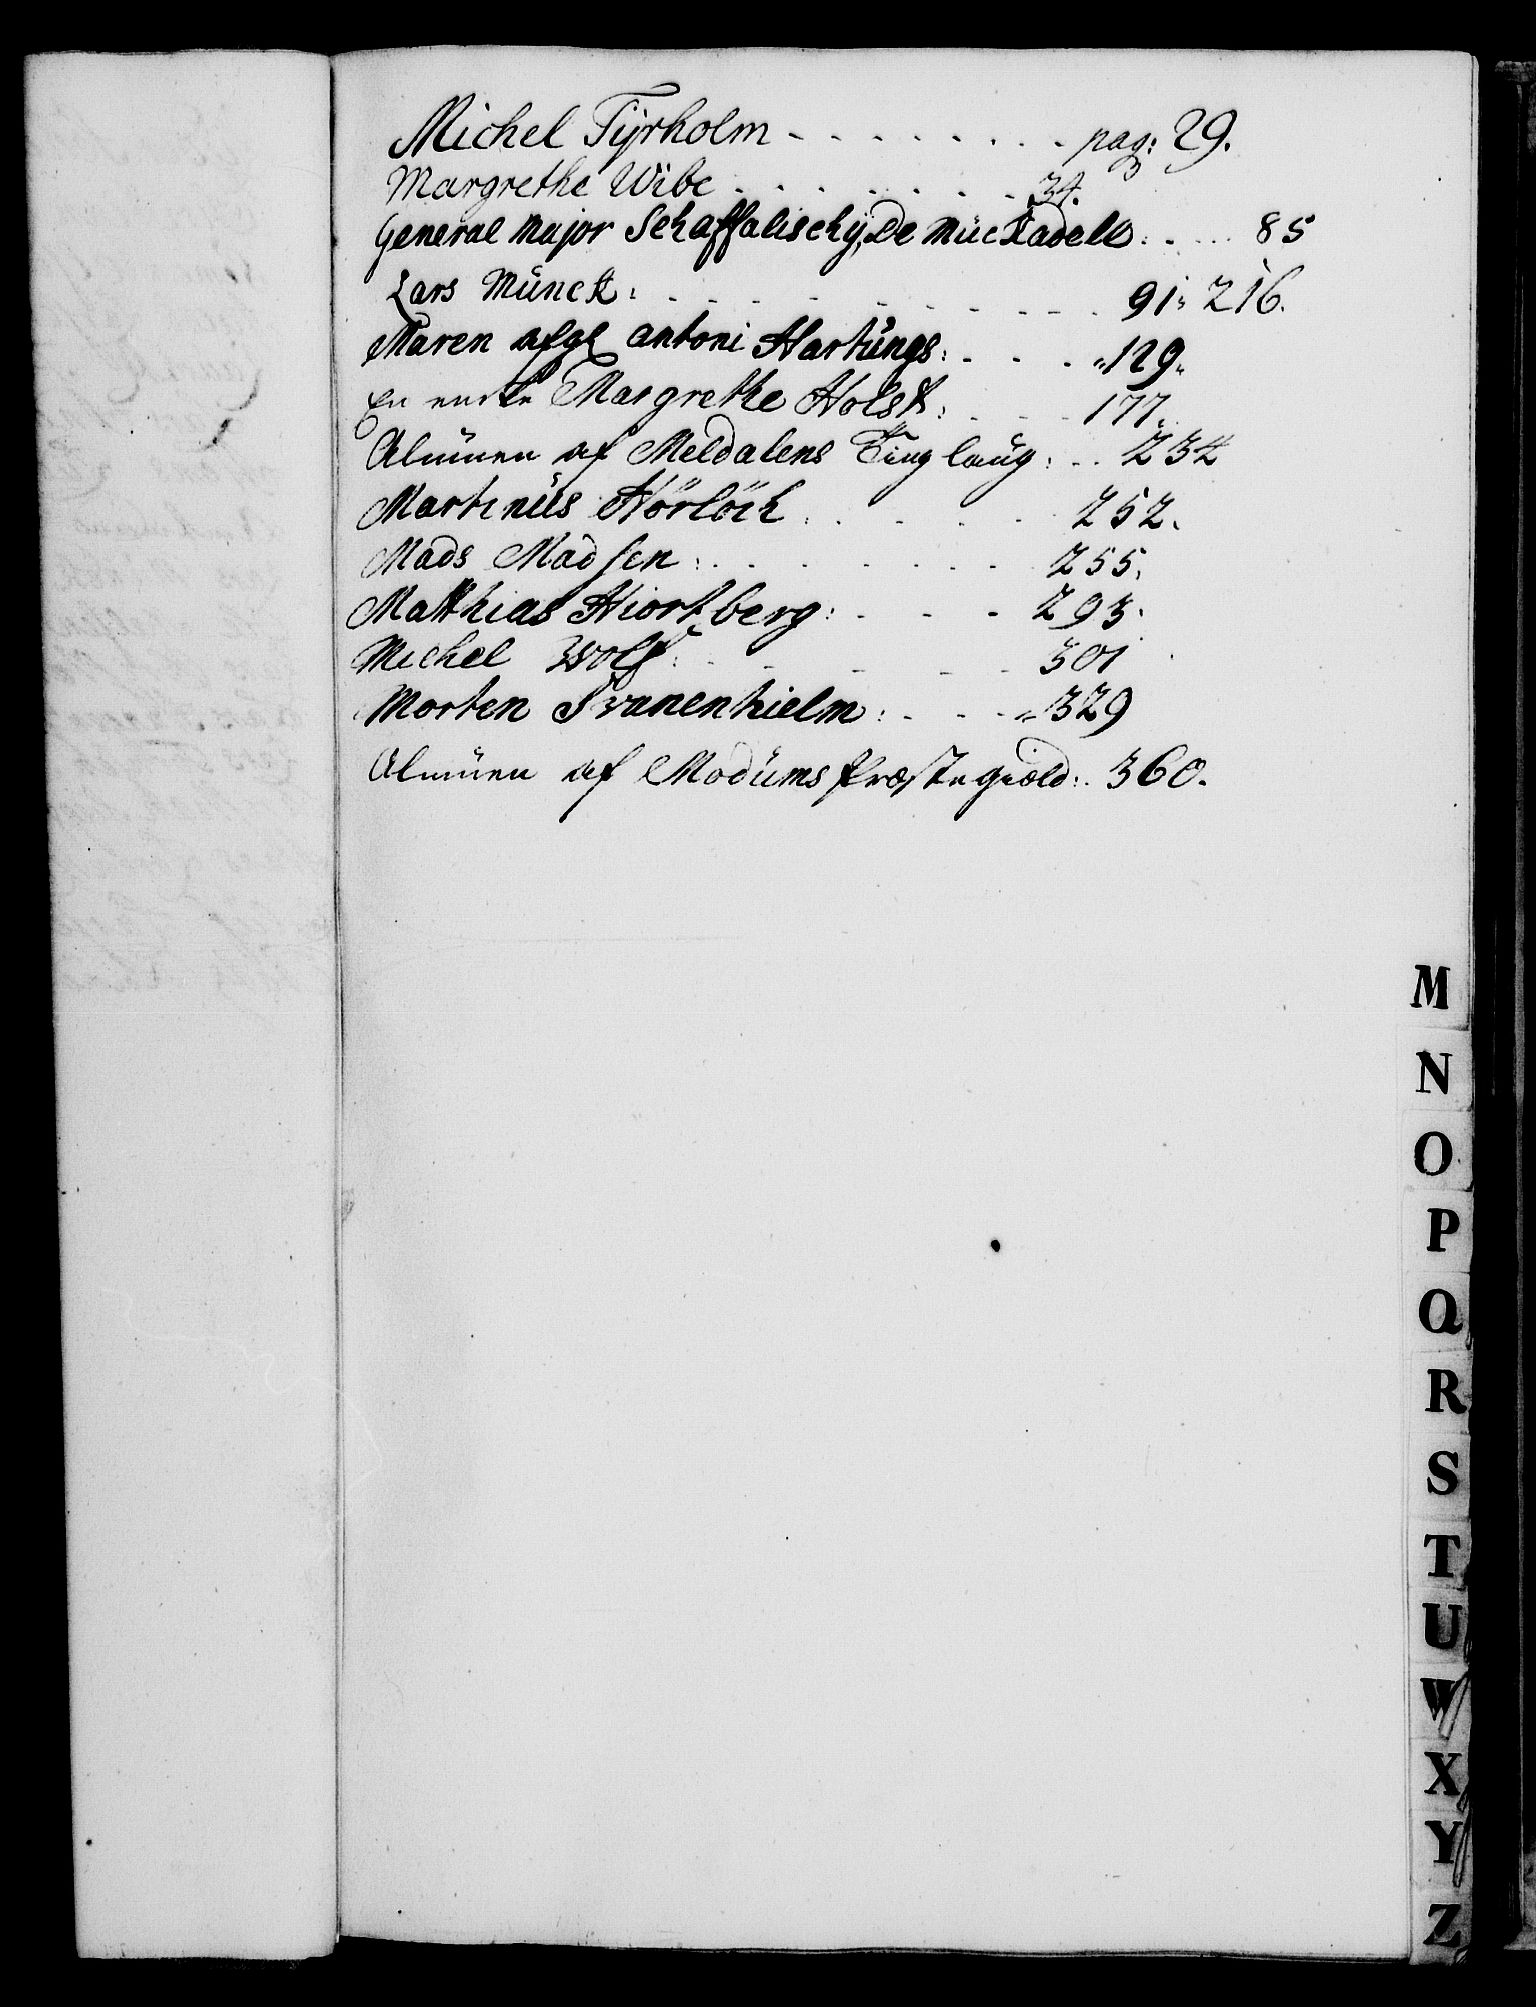 Michel Tÿrholm - - - - - - - - pag: 29.
Margrethe Wibe - - - - - - - 34.
General Major Schaffalischÿ, De Mückadell: - - - 85
Lars Münck: - - - - - - - - - - 91: 216.
Maren afgl antoni Hartüngs: - - - - 129.
En encke Margrethe Holst: - - - 177.
Almüen af Meldalens Tinglaüg: - - 234
Martinüs Hörlöck: - - - - - 252.
Mads Madsen: - - - - - - - 255.
Matthias Hiortberg: - - - - 293.
Michel Wolf: - - - - - - 301
Morten Svanenhielm: - - - 329
Almüen af Modüms Præstegield: - 360.
M
N
O
P
Q
R
S
T
U
W
X
Y
Z